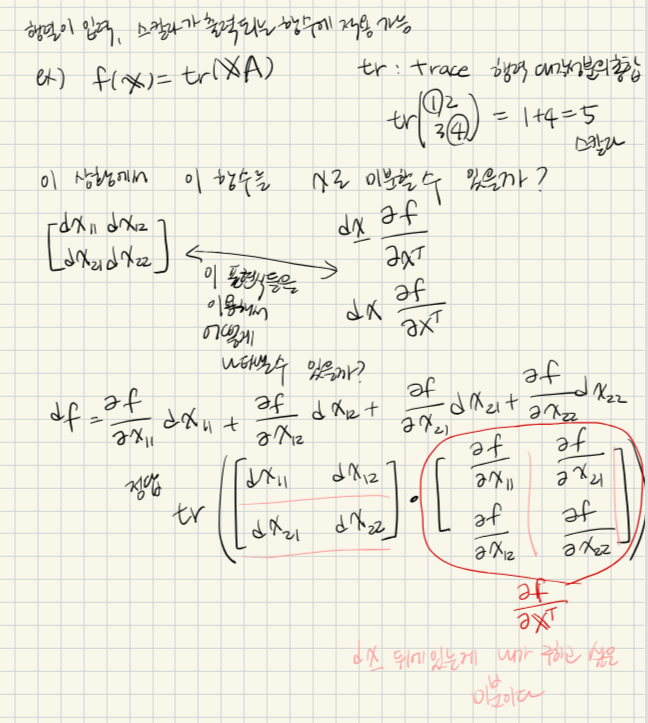 행렬이 입력, 스칼라가 출력되는 함수에 적용 가능
ex) f(X) = tr(XA)
tr : trace 행렬 대각성분의 총합
tr(1 2
3 4) = 1+4 = 5
스칼라
이 상황에서 이 함수를 X로 미분할 수 있을까?
[dx₁₁ dx₁₂
dx₂₁ dx₂₂]
dx ∂f/∂xᵀ
dx ∂f/∂xᵀ
이 표현식들을
이용해서
어떻게
나타낼 수 있을까?
df = ∂f/∂x₁₁ dx₁₁ + ∂f/∂x₁₂ dx₁₂ + ∂f/∂x₂₁ dx₂₁ + ∂f/∂x₂₂ dx₂₂
정답
tr([dx₁₁ dx₁₂
dx₂₁ dx₂₂] · [∂f/∂x₁₁ ∂f/∂x₂₁
∂f/∂x₁₂ ∂f/∂x₂₂])
∂f/∂Xᵀ
dX 뒤에 있는게 내가 구하고 싶은
미분이다